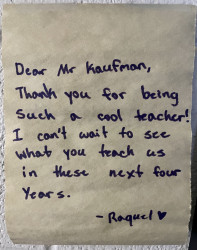 Dear Mr Kaufman,
Thank you for being
Such a cool teacher!
I can't wait to see
what you teach us
in these next four
Years.
- Raquel ♥